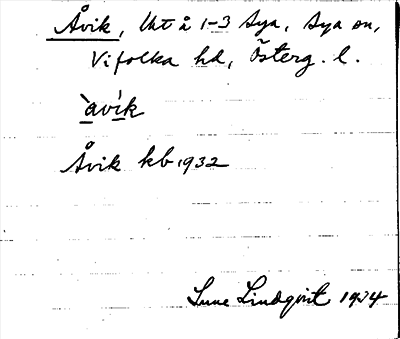 Åvik, Ut å 1-3 Sya, Sya sn,
Vifolka hd, Österg. l.
àvík
Åvik kb 1932
Sune Lindqvist 1924